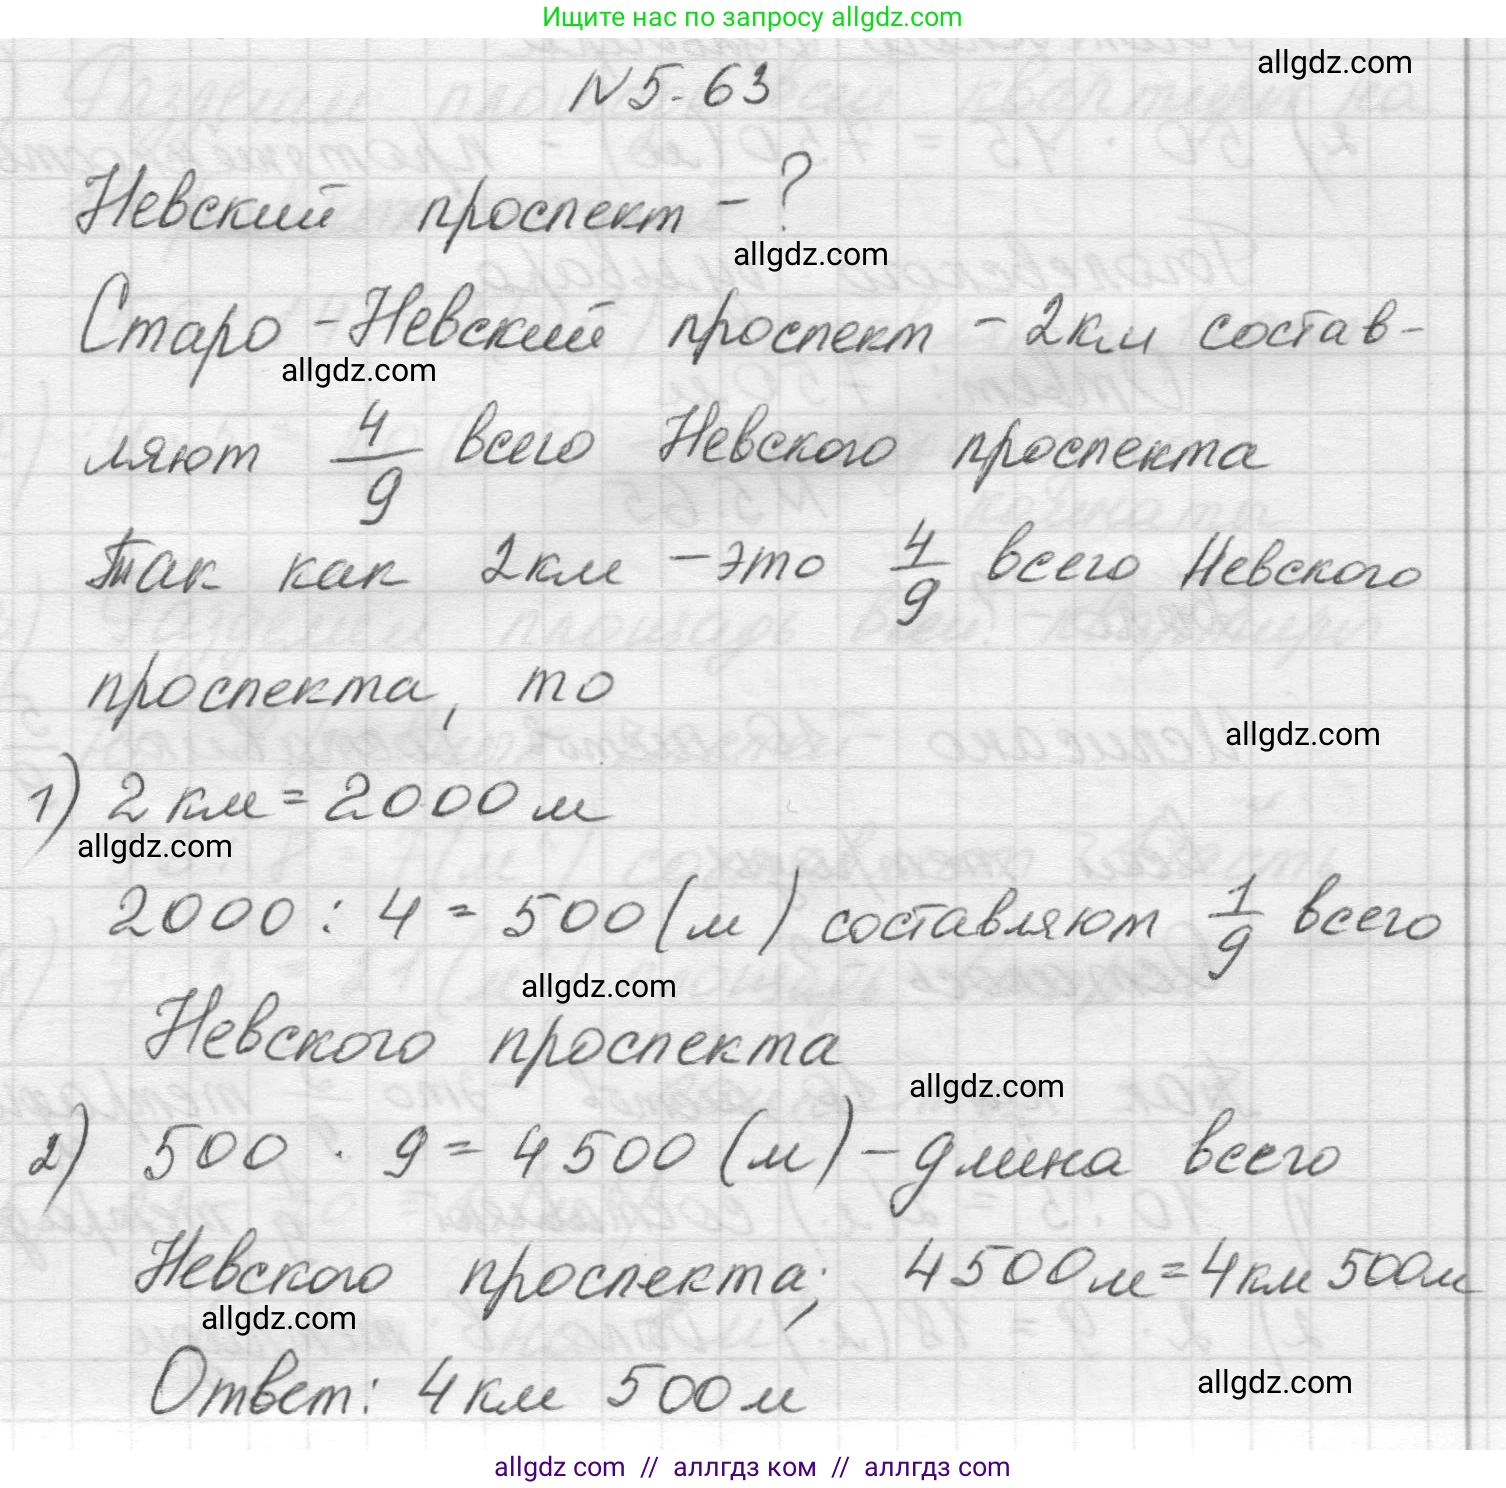 Ищите нас по запросу allgdz.com
allgdz.com
№ 5.63
Невский проспект - ?
allgdz.com
Старо-Невский проспект - 2 км состав-
allgdz.com
ляют 4/9 всего Невского проспекта
Так как 2 км - это 4/9 всего Невского
проспекта, то
allgdz.com
1) 2 км = 2000 м
allgdz.com
2000 : 4 = 500 (м) составляют 1/9 всего
allgdz.com
Невского проспекта
allgdz.com
2) 500 · 9 = 4500 (м) - длина всего
Невского проспекта; 4500 м = 4 км 500 м
allgdz.com
Ответ: 4 км 500 м
allgdz.com
allgdz com // аллгдз ком // аллгдз com